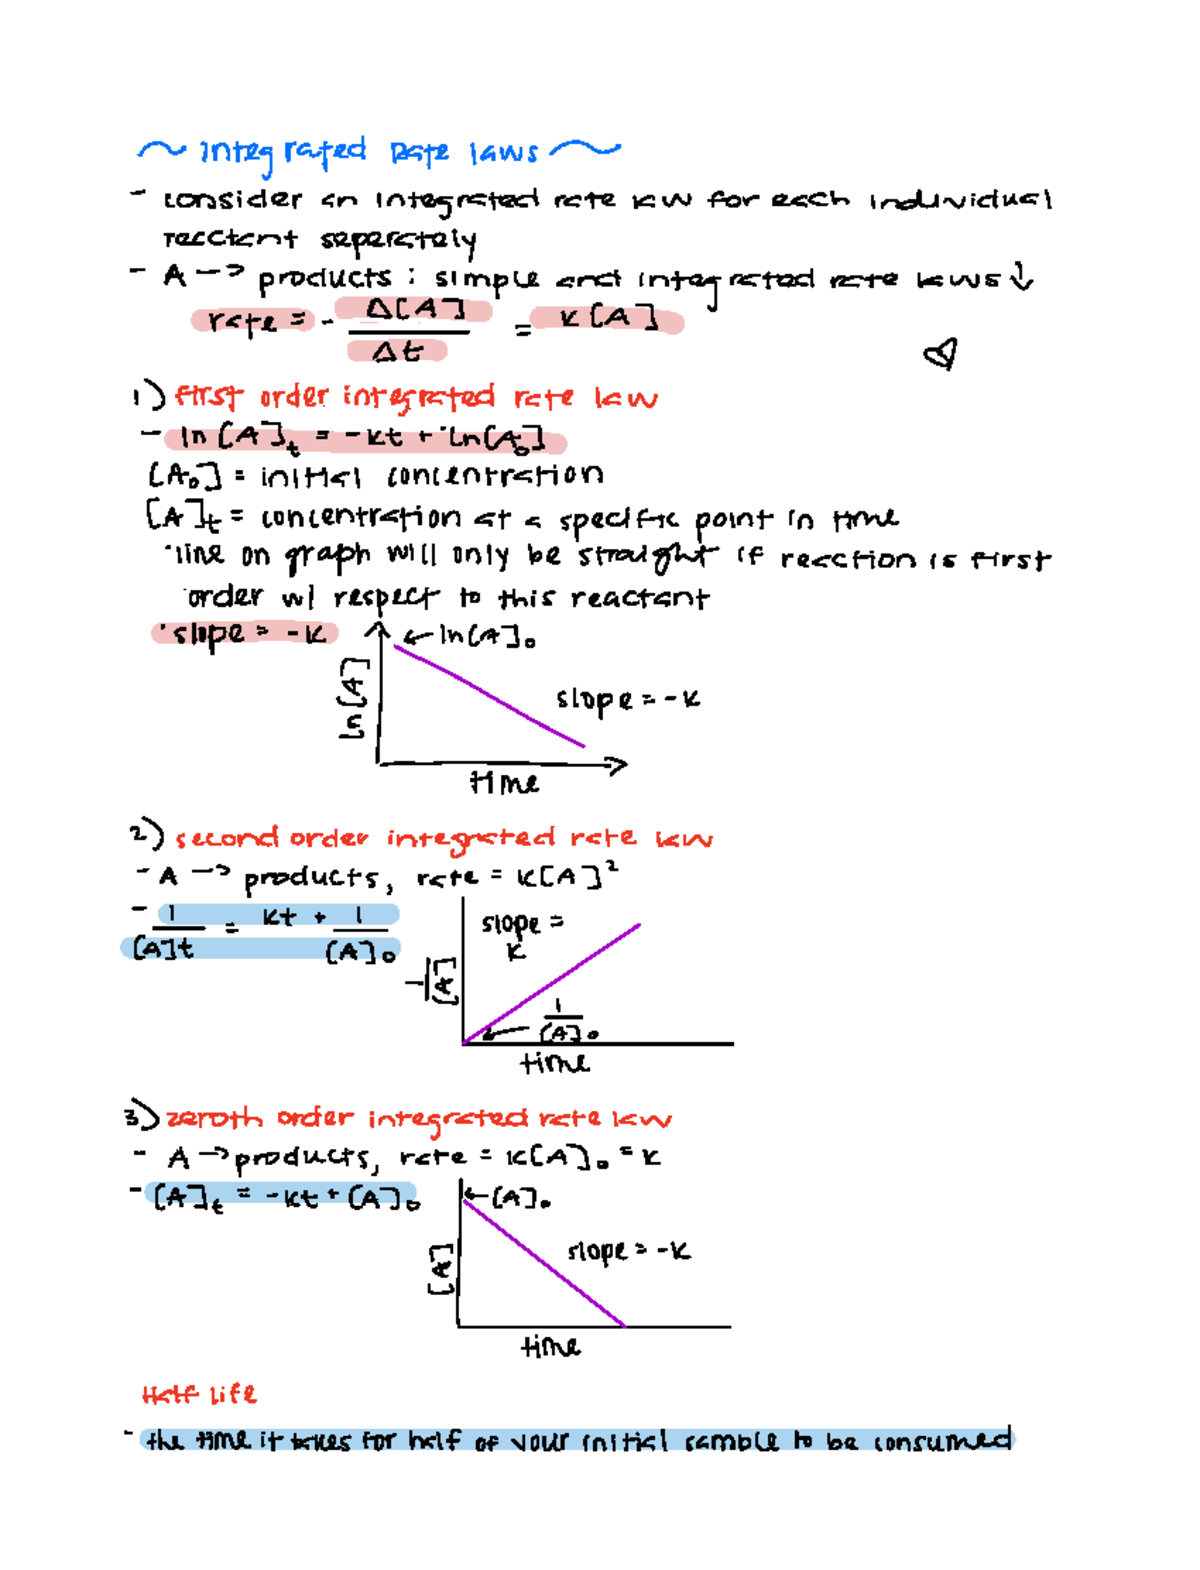 ~ Integrated Rate laws ~
- consider an integrated rate law for each individual
reactant seperately
- A → products : simple and integrated rate laws ↓
rate = - Δ[A] / Δt = k[A]
1) first order integrated rate law
- ln[A]t = -kt + ln[A₀]
[A₀] = initial concentration
[A]t = concentration at a specific point in time
·line on graph will only be straight if reaction is first
order w/ respect to this reactant
·slope = -k
← ln[A]₀
ln[A]
slope = -k
time
2) second order integrated rate law
- A → products, rate = k[A]²
- 1/[A]t = kt + 1/[A]₀
slope =
k
1/[A]
← 1/[A]₀
time
3) zeroth order integrated rate law
- A → products, rate = k[A]₀ = k
- [A]t = -kt + [A]₀
← [A]₀
[A]
slope = -k
time
Half Life
- the time it takes for half of your initial sample to be consumed